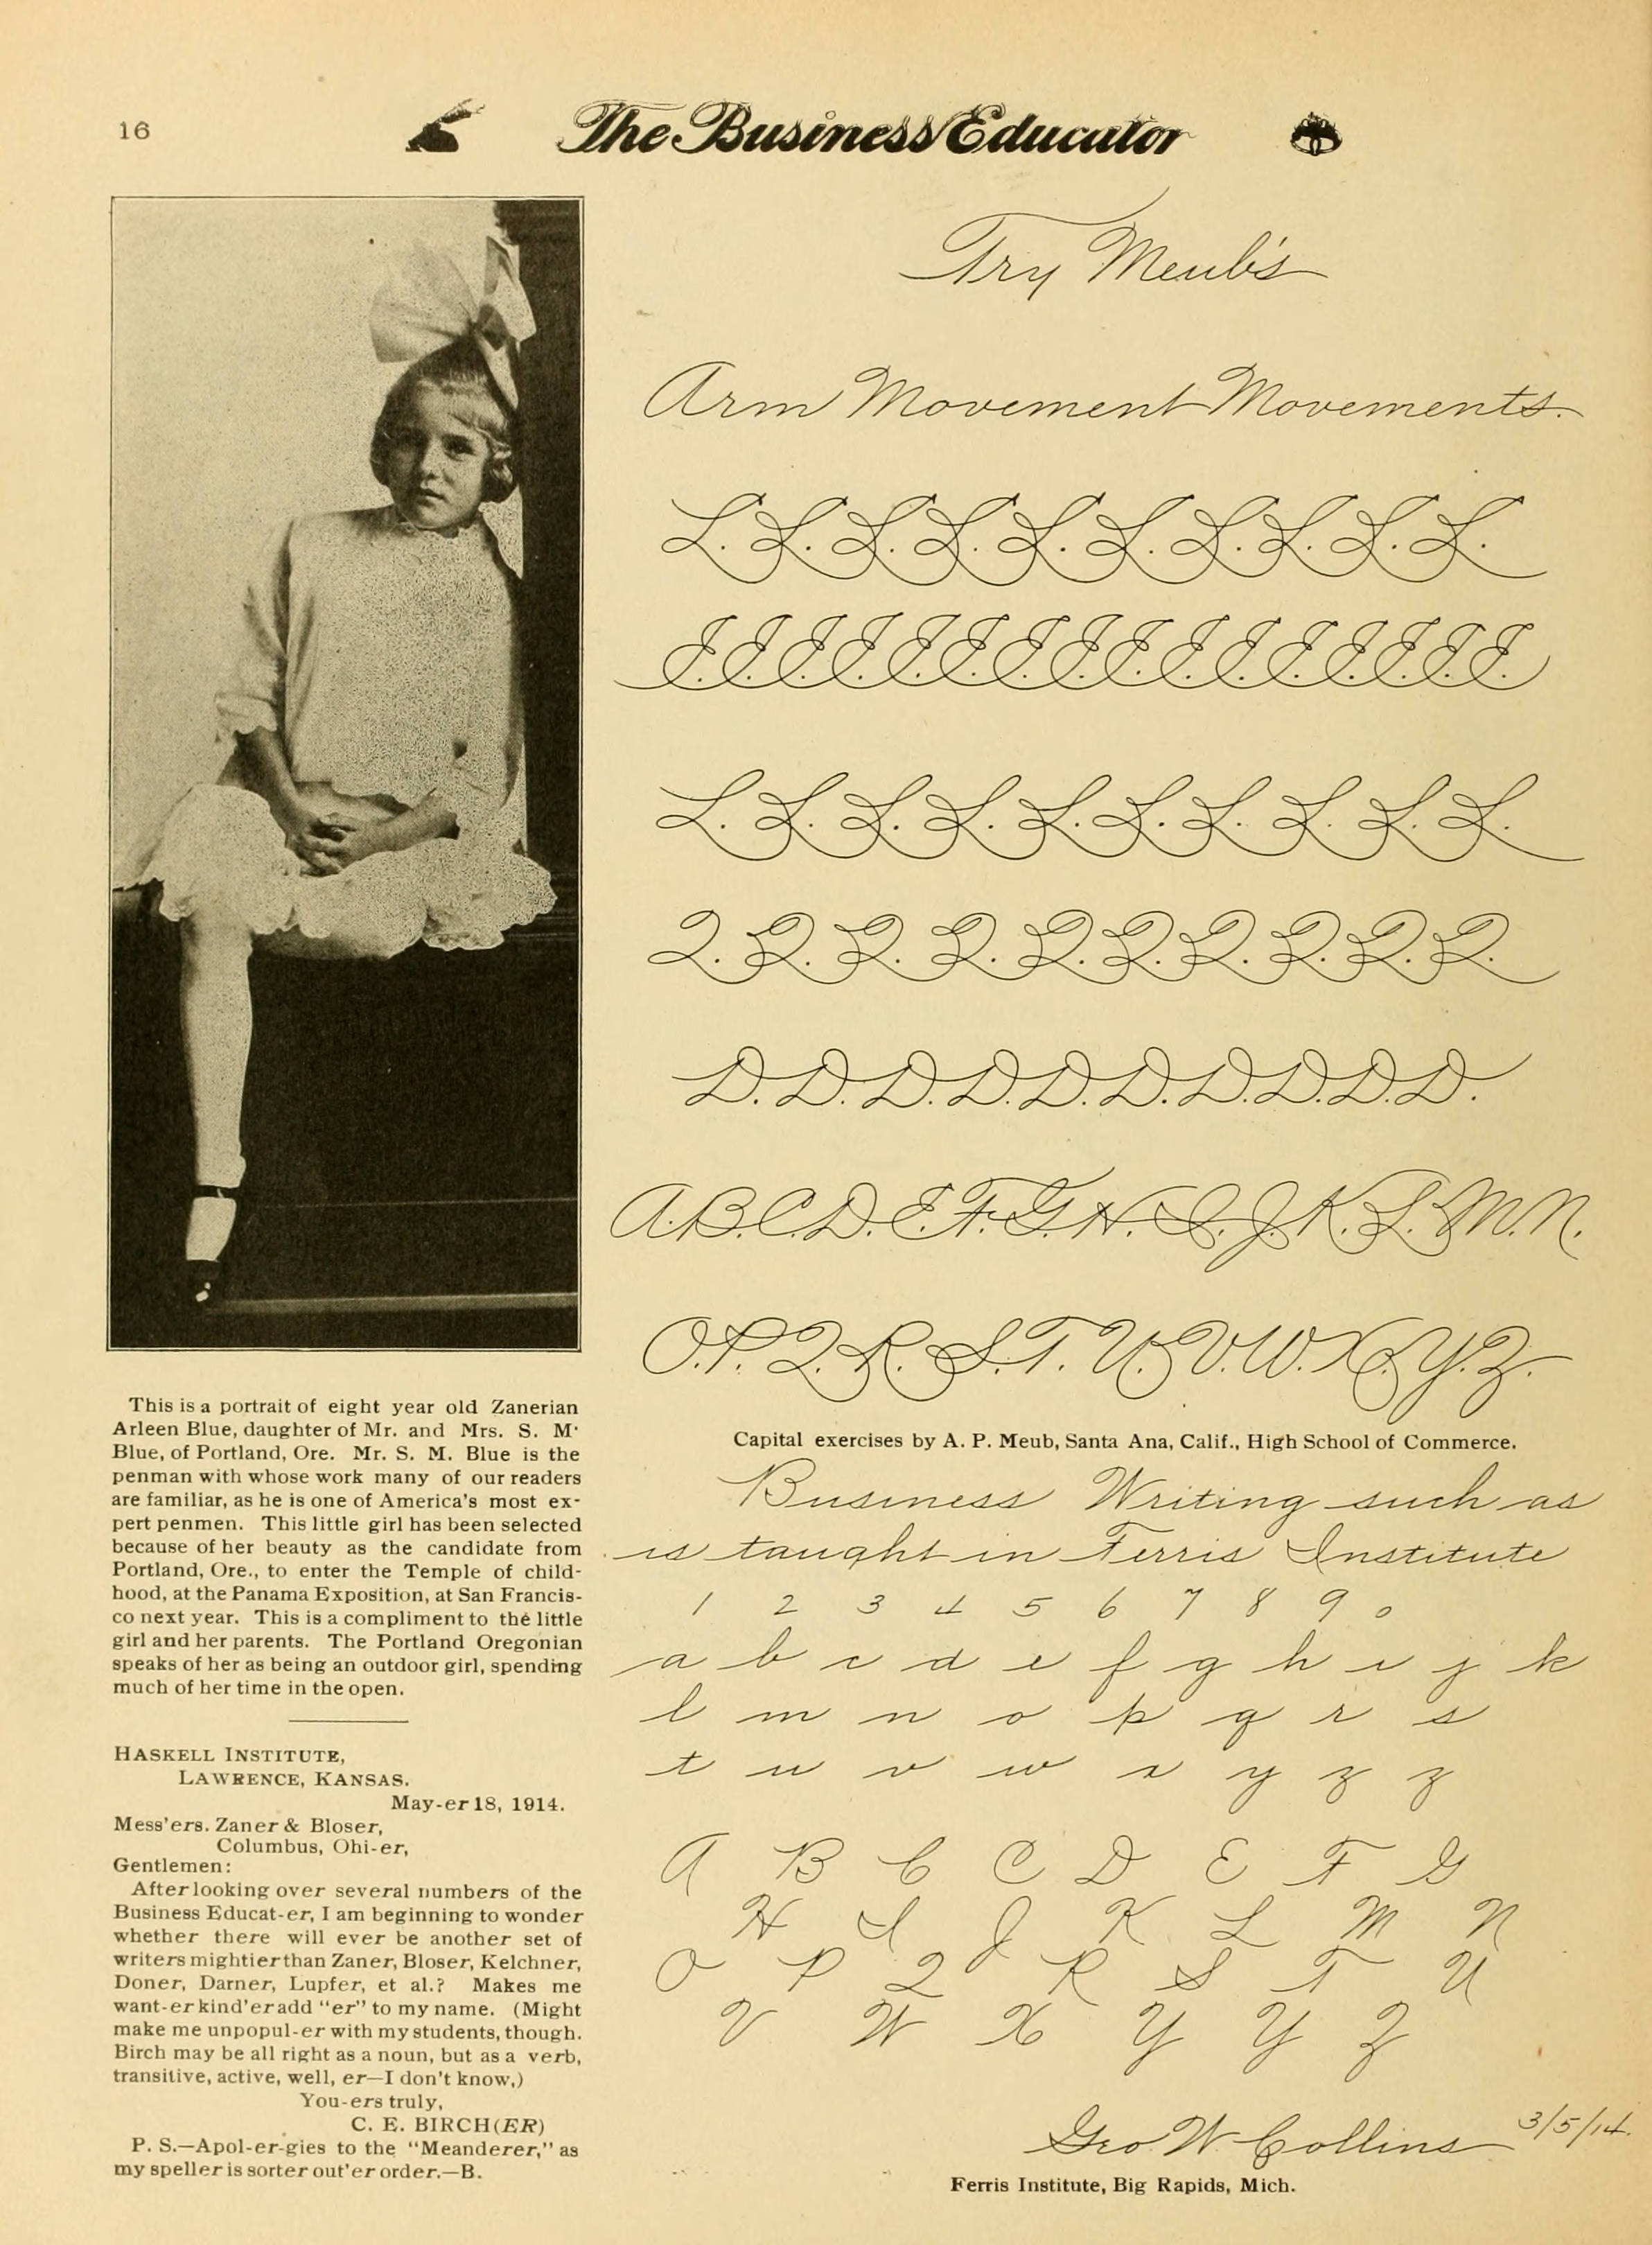 16
The Business Educator
This is a portrait of eight year old Zanerian
Arleen Blue, daughter of Mr. and Mrs. S. M·
Blue, of Portland, Ore. Mr. S. M. Blue is the
penman with whose work many of our readers
are familiar, as he is one of America's most ex-
pert penmen. This little girl has been selected
because of her beauty as the candidate from
Portland, Ore., to enter the Temple of child-
hood, at the Panama Exposition, at San Francis-
co next year. This is a compliment to the little
girl and her parents. The Portland Oregonian
speaks of her as being an outdoor girl, spending
much of her time in the open.
HASKELL INSTITUTE,
LAWRENCE, KANSAS.
May-er 18, 1914.
Mess'ers. Zaner & Bloser,
Columbus, Ohi-er,
Gentlemen:
After looking over several numbers of the
Business Educat-er, I am beginning to wonder
whether there will ever be another set of
writers mightier than Zaner, Bloser, Kelchner,
Doner, Darner, Lupfer, et al.? Makes me
want-er kind'er add "er" to my name. (Might
make me unpopul-er with my students, though.
Birch may be all right as a noun, but as a verb,
transitive, active, well, er—I don't know,)
You-ers truly,
C. E. BIRCH(ER)
P. S.—Apol-er-gies to the "Meanderer," as
my speller is sorter out'er order.—B.
Try Meub's
Arm Movement Movements.
L. L. L. L. L. L. L. L. L. L.
I. I. I. I. I. I. I. I. I. I. I. I. I. I. I. I.
L. L. L. L. L. L. L. L. L. L.
Q. Q. Q. Q. Q. Q. Q. Q. Q. Q.
D. D. D. D. D. D. D. D. D. D.
A. B. C. D. E. F. G. H. I. J. K. L. M. N.
O. P. Q. R. S. T. U. V. W. X. Y. Z.
Capital exercises by A. P. Meub, Santa Ana, Calif., High School of Commerce.
Business Writing such as
is taught in Ferris Institute
1 2 3 4 5 6 7 8 9 0
a b c d e f g h i j k
l m n o p q r s
t u v w x y z z
A B C C D E F G
H I J K L M N
O P Q R S T U
V W X Y Y Z
Geo. W. Collins 3/5/14.
Ferris Institute, Big Rapids, Mich.